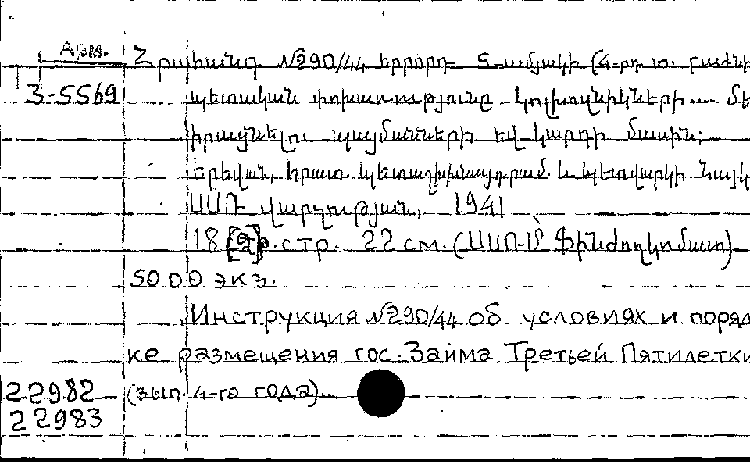 Арм.
Հրահանգ №290/44 երրորդ 5-ամյակի (4-րդ տ.
3-5569
պետական փոխառությունը կոլխոզնիկների
իրացնելու պայմանների եվ կարգի մասին:
Երևան, հրատ. և պետվարկի
ՍՍՌ վարչության, 1941
18 [2] стр. 22 см. (ՍՍՌՄ Ֆինժողկոմատ)
5000 экз.
Инструкция №290/44 об условиях и поряд
ке размещения гос. Займа Третьей Пятилетки
22982 (вып. 4-го года)
22983